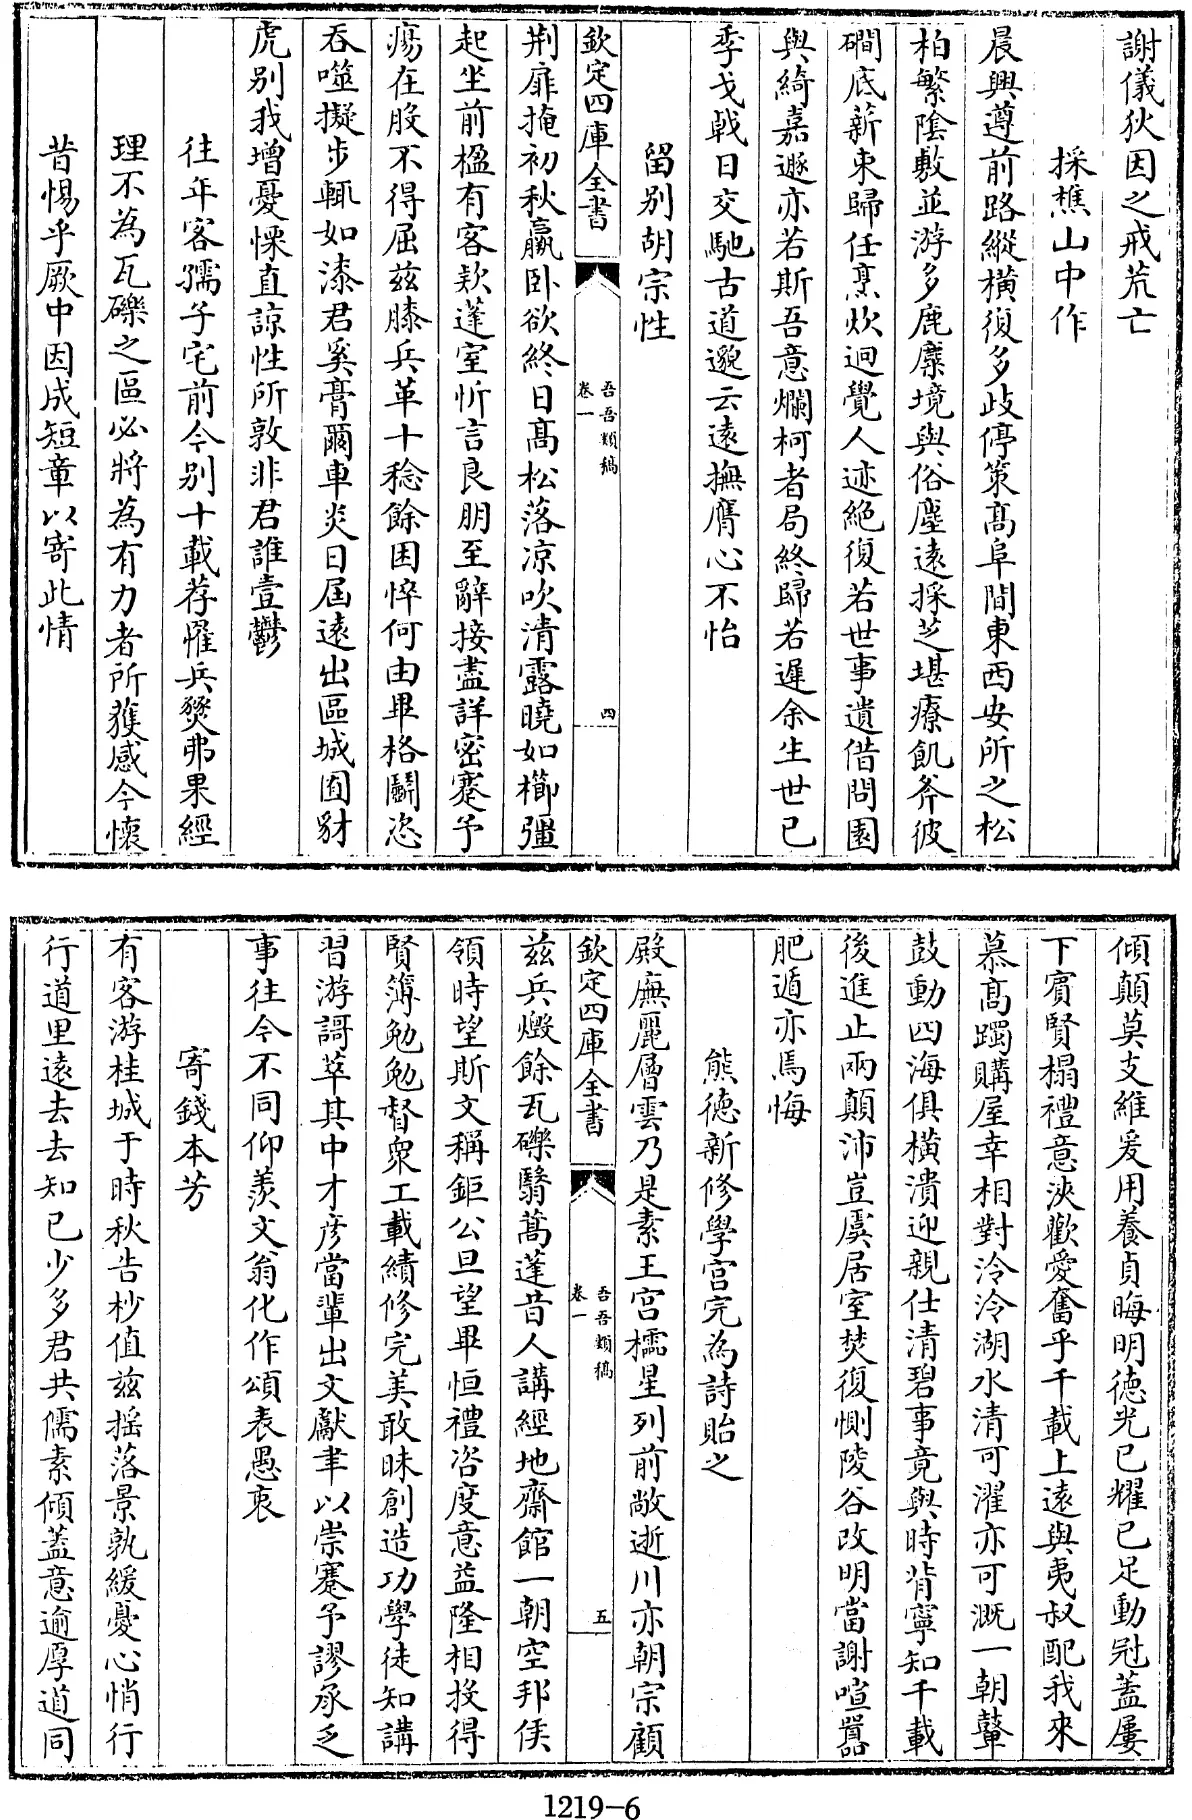 謝儀狄因之戒荒亡
採樵山中作
晨興遵前路縱橫復多歧停策髙阜間東西安所之松
柏繁陰敷並游多鹿麋境與俗塵逺採芝堪療飢斧彼
磵底薪束歸任烹炊迥覺人迹絶復若世事遺借問園
與綺嘉遯亦若斯吾意爛柯者局終歸若遲余生世已
季戈戟日交馳古道邈云逺撫膺心不怡
留别胡宗性
欽定四庫全書
吾吾類稿
卷一
四
荆扉掩初秋羸卧欲終日髙松落凉吹清露曉如櫛彊
起坐前楹有客欵蓬室忻言良朋至辭接盡詳密蹇予
瘍在股不得屈兹膝兵革十稔餘困悴何由畢格鬭恣
吞噬擬步輒如漆君奚膏爾車炎日屆逺出區城囿豺
虎别我增憂慄直諒性所敦非君誰壹鬱
往年客孺子宅前今别十載荐罹兵燹弗果經
理不為瓦礫之區必將為有力者所獲感今懷
昔惕乎厥中因成短章以寄此情
傾顛莫支維爰用養貞晦明徳光已耀已足動冠蓋屢
下賓賢榻禮意浹歡愛奮乎千載上逺與夷叔配我來
慕髙躅購屋幸相對泠泠湖水清可濯亦可溉一朝鼙
鼓動四海俱橫潰迎親仕清碧事竟與時背寧知千載
後進止兩顛沛豈虞居室焚復惻陵谷改明當謝喧囂
肥遁亦焉悔
熊徳新修學宫完為詩貽之
殿廡麗層雲乃是素王宫櫺星列前敞逝川亦朝宗顧
欽定四庫全書
吾吾類稿
卷一
五
兹兵燬餘瓦礫翳蒿蓬昔人講經地齋館一朝空邦侯
領時望斯文稱鉅公旦望畢恒禮咨度意益隆相投得
賢簿勉勉督衆工載績修完美敢昧創造功學徒知講
習游謌萃其中才彦當輩出文獻聿以崇蹇予謬承乏
事往今不同仰羨文翁化作頌表愚衷
寄錢本芳
有客游桂城于時秋告杪值兹揺落景孰緩憂心悄行
行道里逺去去知已少多君共儒素傾蓋意逾厚道同
1219-6